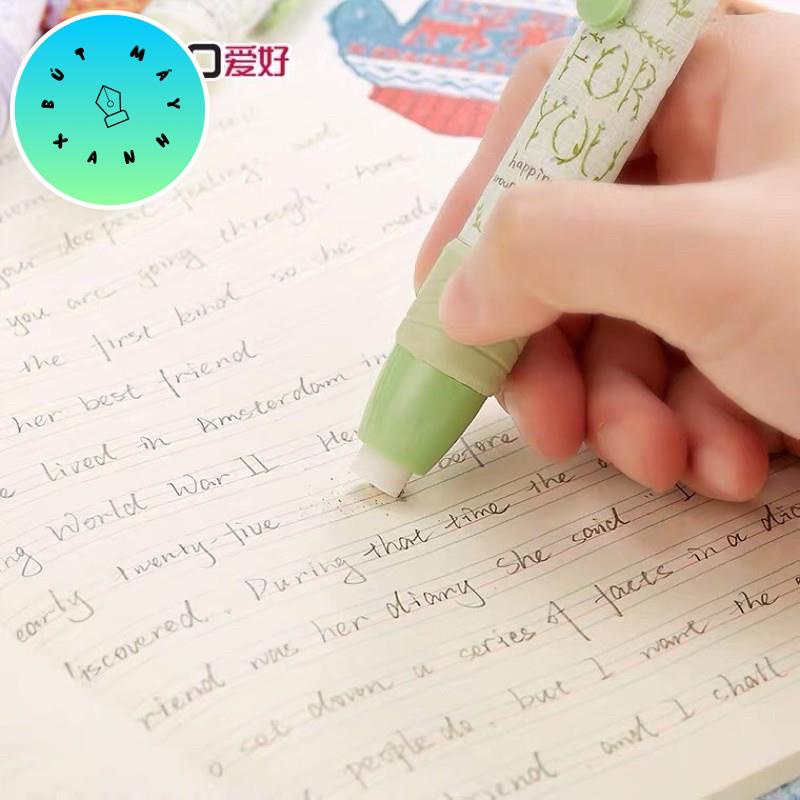 BÚT MÁY XANH
爱好
FOR
YOU
your deepest feelings
you are going through. Anne
the first kind so she made
her best friend
lived in Amsterdam in
World War II. He
early twenty-five before
iscovered. During that time the
riend was her diary. She said "I
set down a series of facts in a
people do. but I want the
iend, and I shall